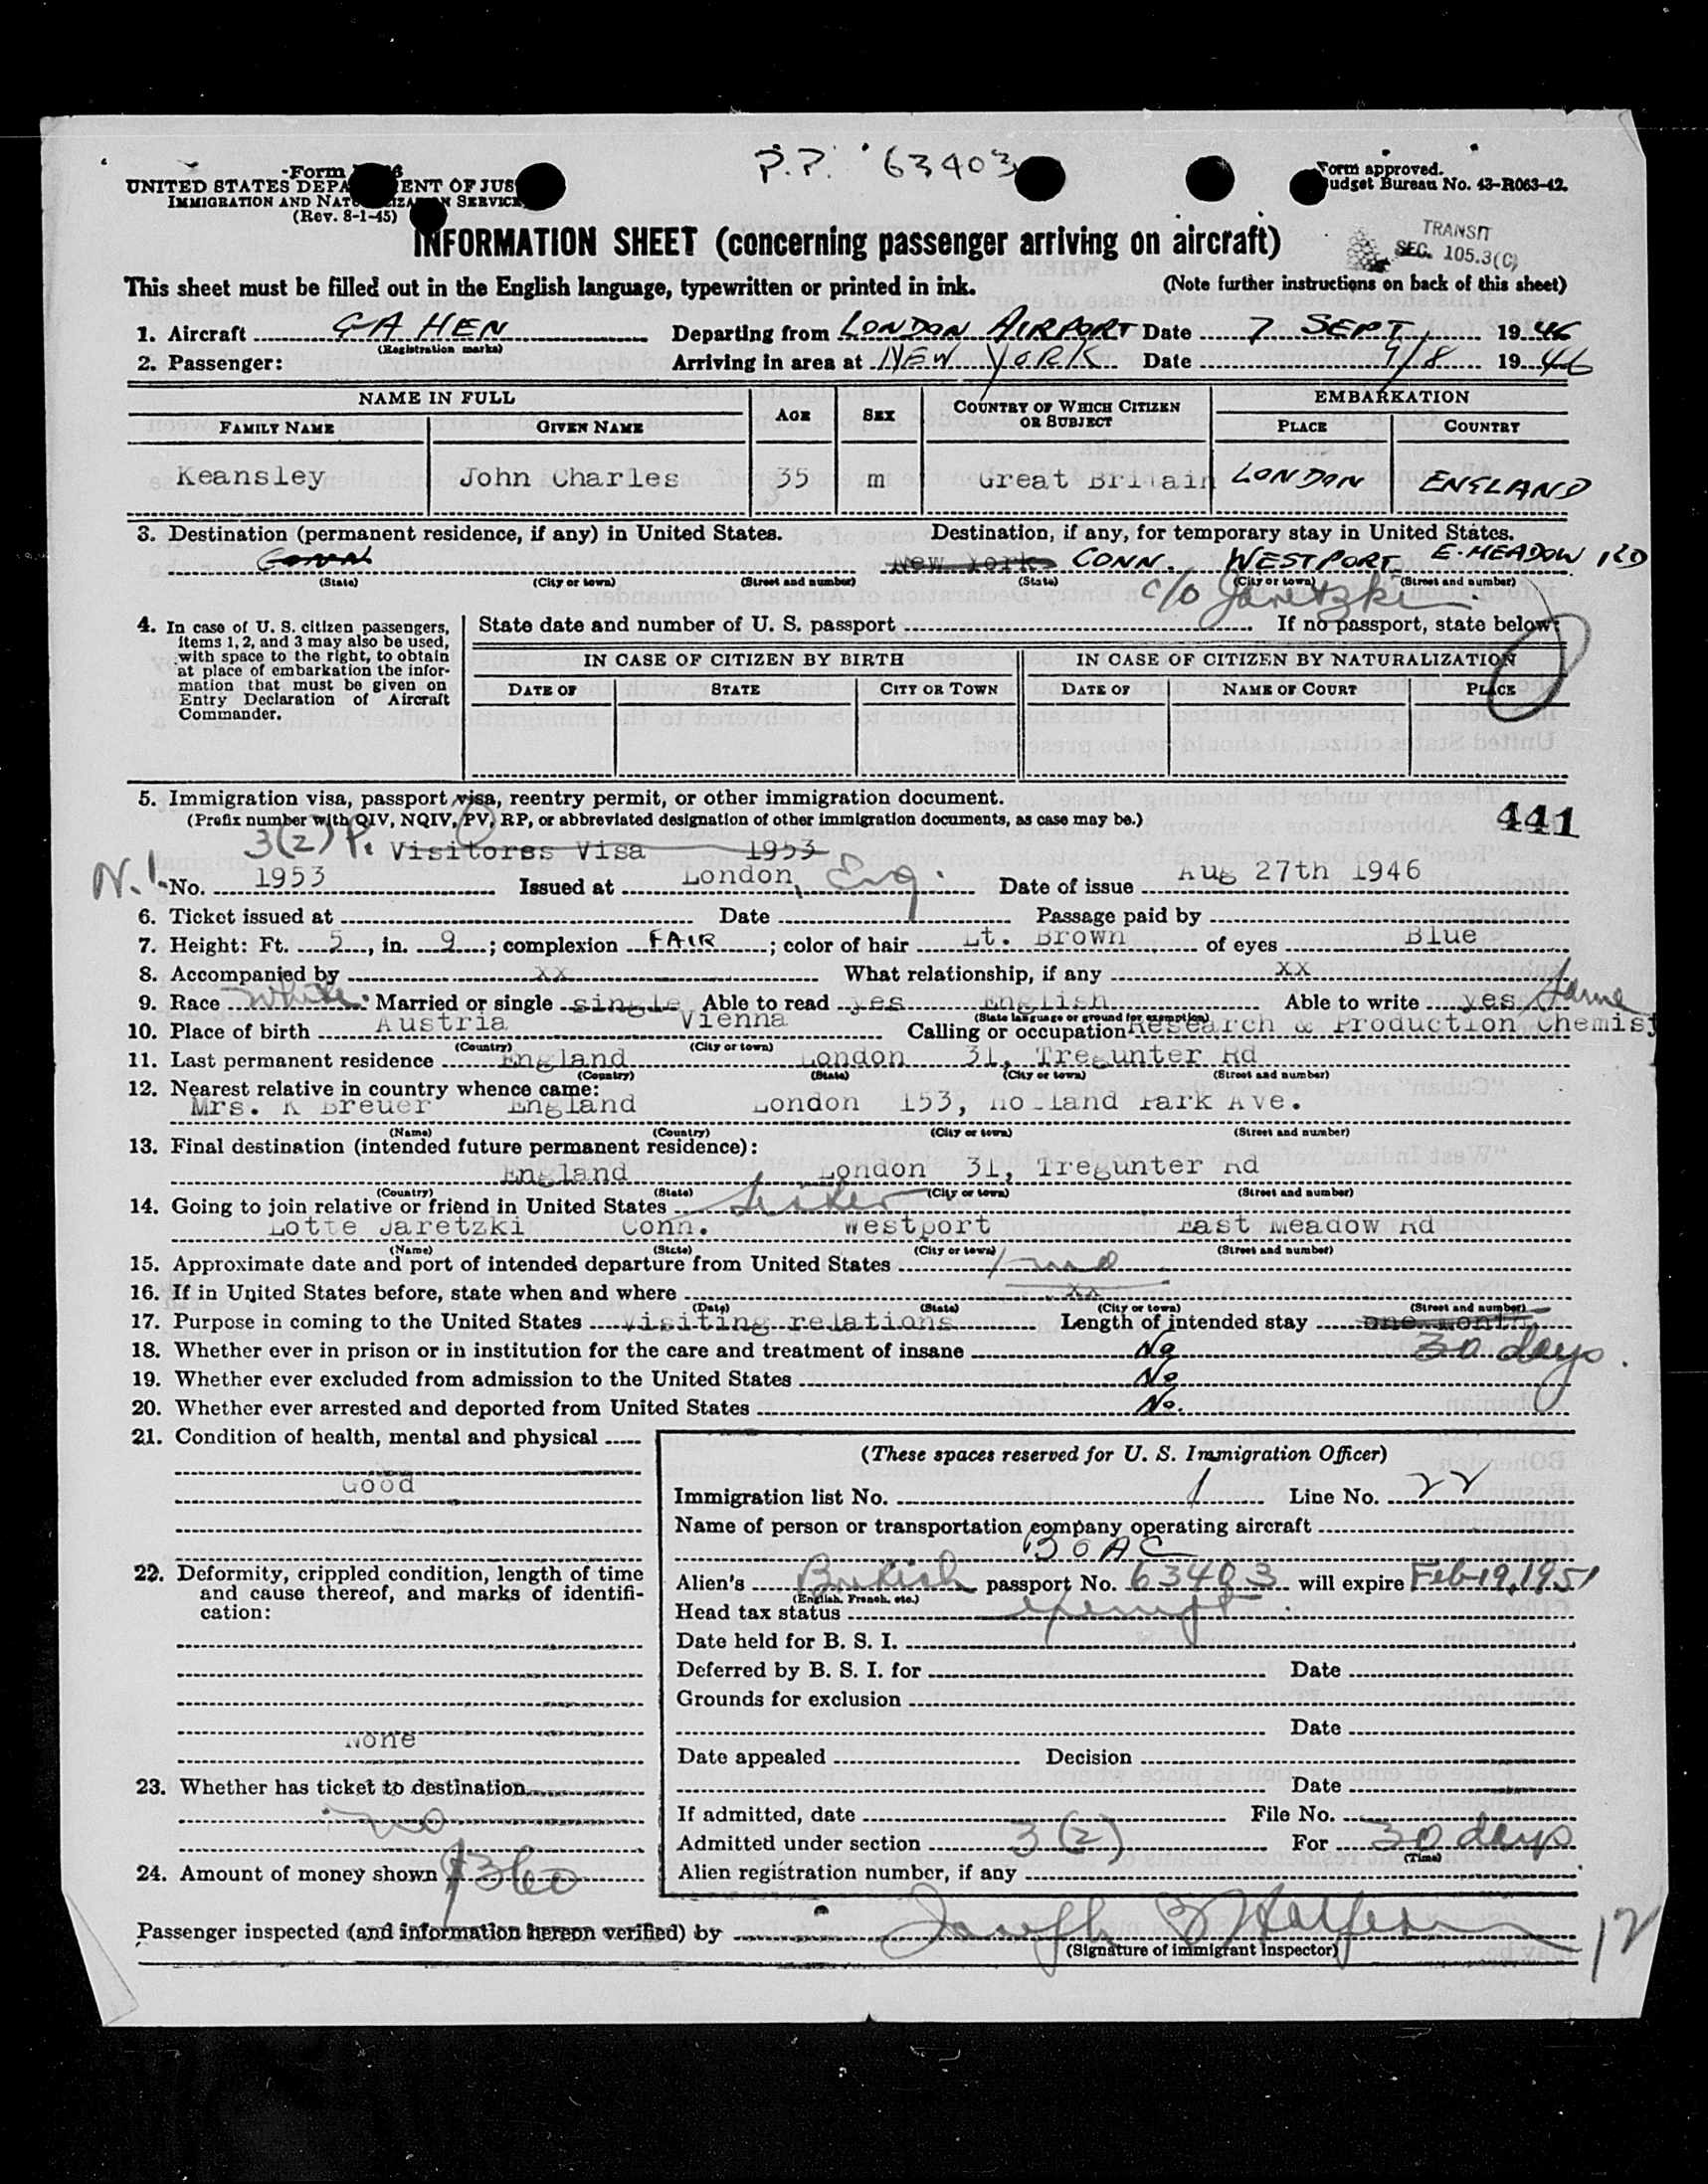 P.P. 63403
Form
UNITED STATES DEPA ENT OF JUS
IMMIGRATION AND NAT IZA N SERVICE
(Rev. 8-1-45)
Form approved.
Budget Bureau No. 43-R063-42.
TRANSIT
SEC. 105.3(C)
INFORMATION SHEET (concerning passenger arriving on aircraft)
This sheet must be filled out in the English language, typewritten or printed in ink. (Note further instructions on back of this sheet)
1. Aircraft G-AHEN Departing from LONDON AIRPORT Date 7 SEPT, 1946
(Registration marks)
2. Passenger: Arriving in area at NEW YORK Date 9/8 1946
NAME IN FULL AGE SEX COUNTRY OF WHICH CITIZEN OR SUBJECT EMBARKATION
FAMILY NAME GIVEN NAME PLACE COUNTRY
Keansley John Charles 35 m Great Britain LONDON ENGLAND
3. Destination (permanent residence, if any) in United States. Destination, if any, for temporary stay in United States.
Conn New York CONN. WESTPORT E. MEADOW RD
(State) (City or town) (Street and number) (State) (City or town) (Street and number)
c/o Jaretzki
4. In case of U. S. citizen passengers, items 1, 2, and 3 may also be used, with space to the right, to obtain at place of embarkation the information that must be given on Entry Declaration of Aircraft Commander.
State date and number of U. S. passport If no passport, state below:
IN CASE OF CITIZEN BY BIRTH IN CASE OF CITIZEN BY NATURALIZATION
DATE OF STATE CITY OR TOWN DATE OF NAME OF COURT PLACE
5. Immigration visa, passport visa, reentry permit, or other immigration document.
(Prefix number with QIV, NQIV, PV, RP, or abbreviated designation of other immigration documents, as case may be.)
441
3(2) P. Visitorss Visa 1953
N.I. No. 1953 Issued at London, Eng. Date of issue Aug 27th 1946
6. Ticket issued at Date Passage paid by
7. Height: Ft. 5, in. 9; complexion FAIR; color of hair Lt. Brown of eyes Blue
8. Accompanied by xx What relationship, if any xx
9. Race White Married or single single Able to read yes English Able to write yes Same
(State language or ground for exemption)
10. Place of birth Austria Vienna Calling or occupation Research & Production Chemist
(Country) (City or town)
11. Last permanent residence England London 31, Tregunter Rd
(Country) (State) (City or town) (Street and number)
12. Nearest relative in country whence came:
Mrs. K Breuer England London 153, Holland Park Ave.
(Name) (Country) (City or town) (Street and number)
13. Final destination (intended future permanent residence):
England London 31, Tregunter Rd
(Country) (State) (City or town) (Street and number)
14. Going to join relative or friend in United States Sister
Lotte Jaretzki Conn. Westport East Meadow Rd
(Name) (State) (City or town) (Street and number)
15. Approximate date and port of intended departure from United States 1 mo
16. If in United States before, state when and where xx
(Date) (State) (City or town) (Street and number)
17. Purpose in coming to the United States Visiting relations Length of intended stay one month
30 days.
18. Whether ever in prison or in institution for the care and treatment of insane No
19. Whether ever excluded from admission to the United States No
20. Whether ever arrested and deported from United States No.
21. Condition of health, mental and physical
Good
22. Deformity, crippled condition, length of time and cause thereof, and marks of identification:
None
23. Whether has ticket to destination
no
24. Amount of money shown $360
(These spaces reserved for U. S. Immigration Officer)
Immigration list No. 1 Line No. 22
Name of person or transportation company operating aircraft
BOAC
Alien's British passport No. 63403 will expire Feb 19, 1951
(English, French, etc.)
Head tax status exempt
Date held for B. S. I.
Deferred by B. S. I. for Date
Grounds for exclusion
Date
Date appealed Decision
Date
If admitted, date File No.
Admitted under section 3(2) For 30 days
(Time)
Alien registration number, if any
Passenger inspected (and information hereon verified) by Joseph
(Signature of immigrant inspector)
12